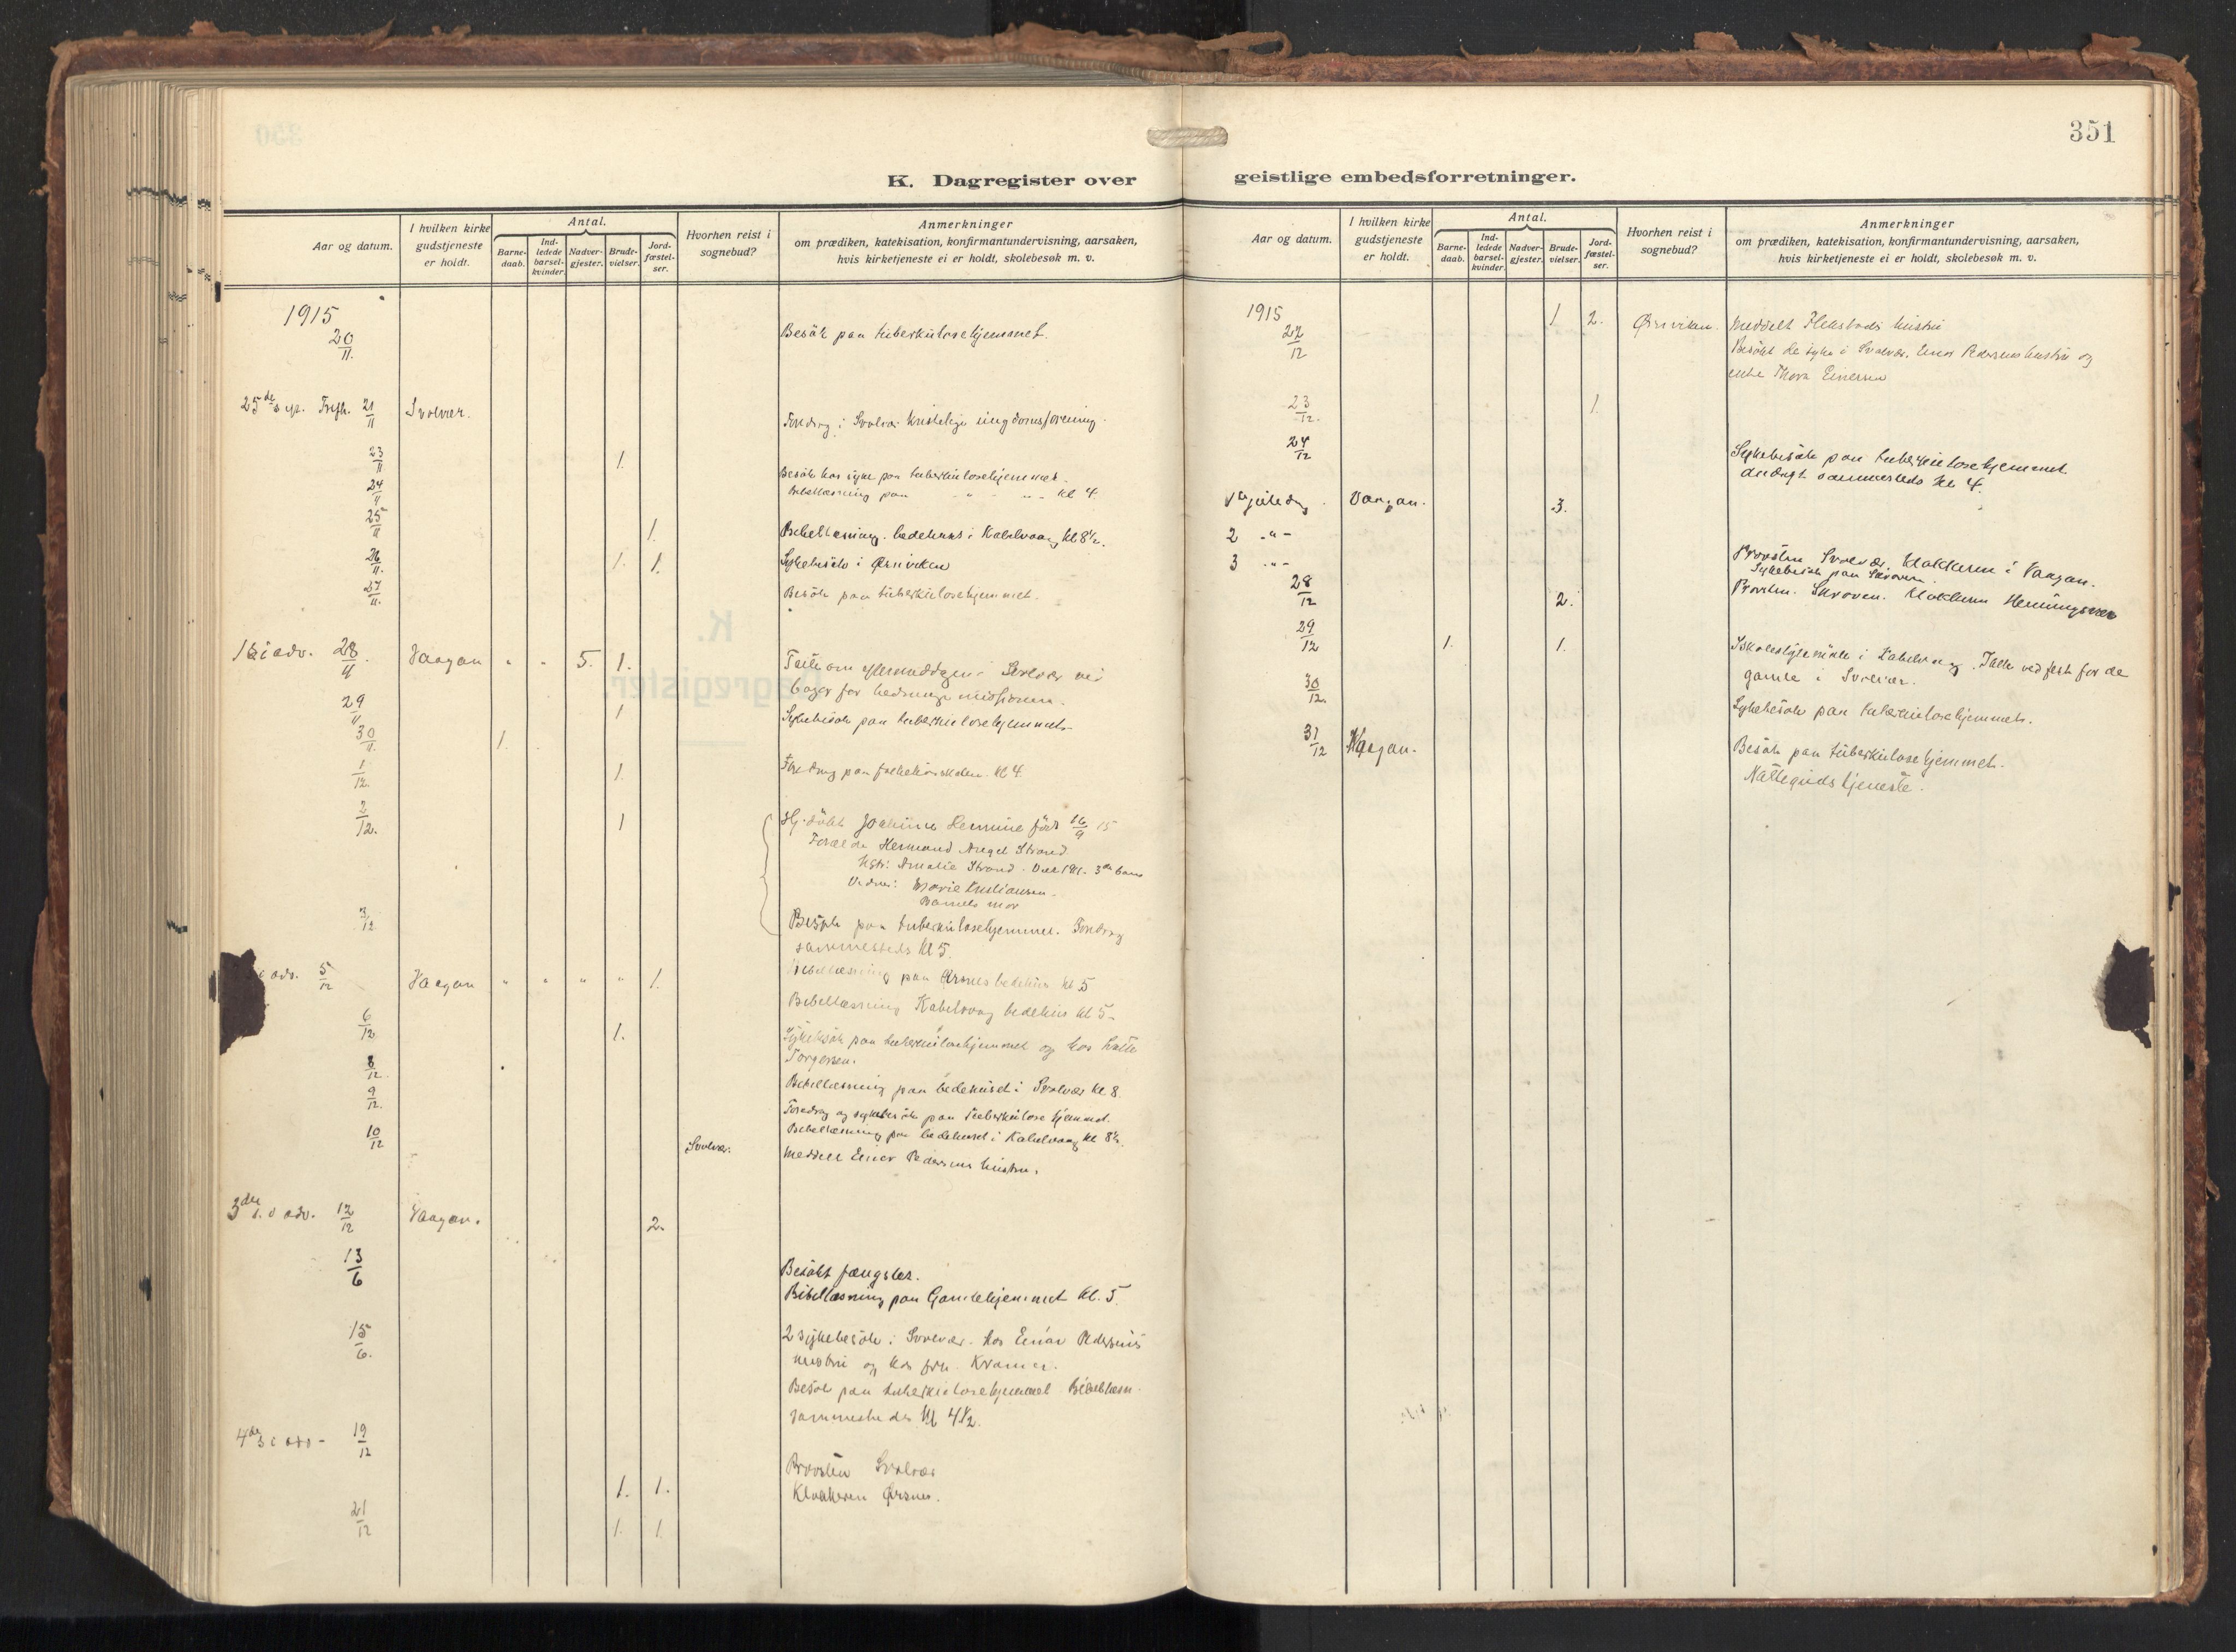 351
K. Dagregister over geistlige embedsforretninger.
Aar og datum.
I hvilken kirke gudstjeneste er holdt.
Antal.
Barnedaab.
Indledede barselkvinder.
Nadvergjester.
Brudevielser.
Jordfæstelser.
Hvorhen reist i sognebud?
Anmerkninger
om prædiken, katekisation, konfirmantundervisning, aarsaken,
hvis kirketjeneste ei er holdt, skolebesøk m. v.
1915
20/11. Besøk paa tuberkulosehjemmet.
25de s. e. Trefh. 21/11 Svolvær. Foredrag i Svolvær kristelige ungdomsforening.
23/11 1.
24/11 Besøk hos syke paa tuberkulosehjemmet.
Bibellæsning paa - " - " - kl 4.
25/11 1. Bibellæsning. bedehus i Kabelvaag kl 8½.
26/11. 1. 1. Sykebesøk i Ørsviken
27/11. Besøk paa tuberkulosehjemmet.
1 s i adv. 28/11. Vaagan " " 5. 1. Talte om eftermiddagen i Svolvær ved
bazar for hedningemissionen.
29/11 1 Sykebesøk paa tuberkulosehjemmet
30/11. 1.
1/12. 1. Foredrag paa folkehøiskolen kl 4.
2/12. 1 Hj. døbt Joakime Hermine født 16/9 15
Forældre Hermand Angel Strand
Hstr. Amalie Strand. Viet 1911. 3de barn
Vidner: Marie Kristiansen
Barnets mor
3/12 Besøk paa tuberkulosehjemmet. Foredrag
sammesteds kl 5.
i adv. 5/12 Vaagan " " " " 1. Bibellæsning paa Ørsnes bedehus kl 5
Bibellæsning Kabelvaag bedehus kl 5
6/12 1. Sykebesøk paa tuberkulosehjemmet og hos
Torgersen.
8/12 Bibellæsning paa bedehuset i Svolvær kl 8.
9/12. Foredrag og sykebesøk paa tuberkulosehjemmet.
Bibellæsning paa bedehuset i Kabelvaag kl 8½.
10/12 Svolvær. Meddelt Einar Pedersens hustru.
3die s. i adv. 12/12 Vaagan. 2.
13/6 Besøkt fængslet.
Bibellæsning paa Gamlehjemmet kl. 5.
15/6. 2 sykebesøk i Svolvær. hos Einar Pedersens
hustru og hos fru Kramer.
Besøk paa tuberkulosehjemmet Bibellæsn.
sammesteds kl 4½.
4de s i adv - 19/12
Provsten Svolvær
1. 1. Klokkeren Ørsnes.
21/12 1. 1.
Aar og datum.
I hvilken kirke gudstjeneste er holdt.
Antal.
Barnedaab.
Indledede barselkvinder.
Nadvergjester.
Brudevielser.
Jordfæstelser.
Hvorhen reist i sognebud?
Anmerkninger
om prædiken, katekisation, konfirmantundervisning, aarsaken,
hvis kirketjeneste ei er holdt, skolebesøk m. v.
1915
22/12 1 2. Ørsviken. Meddelt Flekstads hustru
Besøkt de syke i Svolvær, Einar Pedersens hustru og
enke Thora Einersen
23/12. 1.
24/12 Sykebesøk paa tuberkulosehjemmet
andagt sammesteds kl 4.
1ste juledag. Vaagan. 3.
2 - " -
3 - " - Provsten Svolvær. Klokkeren i Vaagan.
Sykebesøk paa Skroven.
28/12 2. Provsten. Skroven. Klokkeren Henningsvær
29/12 1. 1. Skolestyremøte i Kabelvaag. Talte ved fest for de
gamle i Svolvær.
30/12. Sykebesøk paa tuberkulosehjemmet.
31/12 Vaagan. Besøk paa tuberkulosehjemmet.
Nattegudstjeneste.